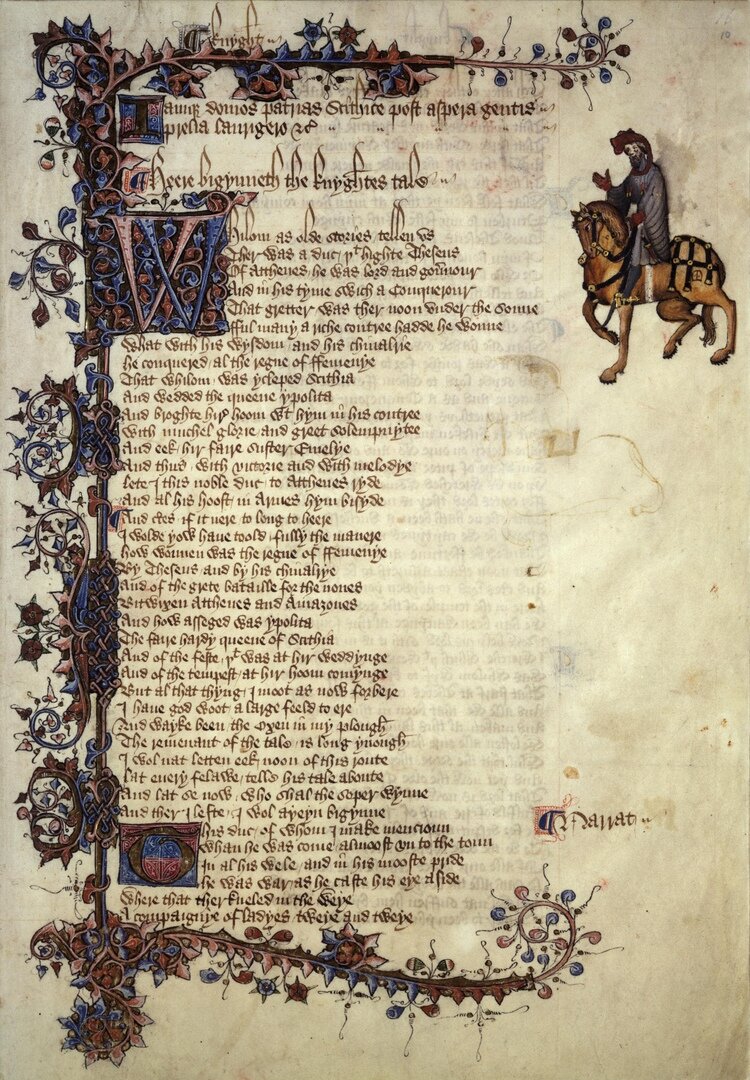 Knyght
10
Iamque domos patrias Scithice post aspera gentis
prelia laurigero &c
Heere bigynneth the knyghtes tale
Whilom as olde stories tellen us
Ther was a duc þt highte Theseus
Of Atthenes he was lord and gouernour
And in his tyme swich a Conquerour
That gretter was ther noon under the sonne
fful many a riche contree hadde he wonne
What with his wysdom and his chiualrie
he conquered al the regne of ffemenye
That whilom was ycleped Scithia
And wedded the queene ypolita
And broghte hire hoom wt hym in his contree
With muchel glorie and greet solempnytee
And eek hir faire suster Emelye
And thus with victorie and with melodye
lete I this noble duc to Atthenes ryde
And al his hoost in Armes hym bisyde
And certes if it nere to long to heere
I wolde yow haue toold fully the manere
how wonnen was the regne of ffemenye
By Theseus and by his chiualrye
And of the grete bataille for the nones
Bitwixen Atthenes and Amazones
And how asseged was ypolita
The faire hardy queene of Scithia
And of the feste þt was at hir weddynge
And of the tempest at hir hoom comynge
But al that thyng I moot as now forbere
I haue god woot a large feeld to ere
And wayke been the Oxen in my plough
The remenant of the tale is long ynough
I wol nat letten eek noon of this route
lat euery felawe telle his tale aboute
And lat se now who shal the soper wynne
And ther I lefte I wol ayeyn bigynne
Narrat
This duc of whom I make mencioun
Whan he was come almoost un to the toun
In al his wele and in his mooste pride
he was war as he caste his eye aside
Where that ther kneled in the weye
A compaignye of ladyes tweye and tweye